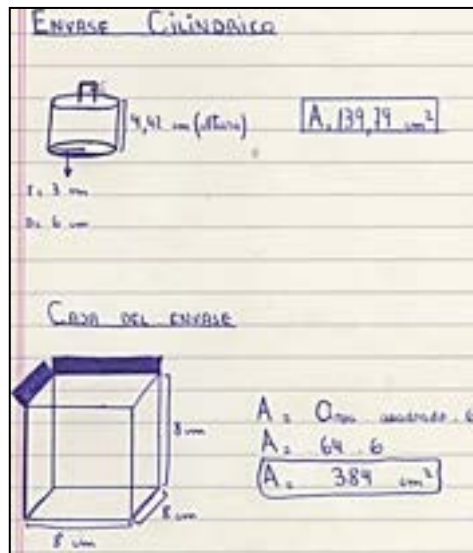 ENVASE CILINDRICO
4,42 cm (altura)
A = 139,79 cm²
r = 3 cm
D = 6 cm
CAJA DEL ENVASE
8 cm
8 cm
8 cm
A = Área cuadrado . 6
A = 64 . 6
A = 384 cm²